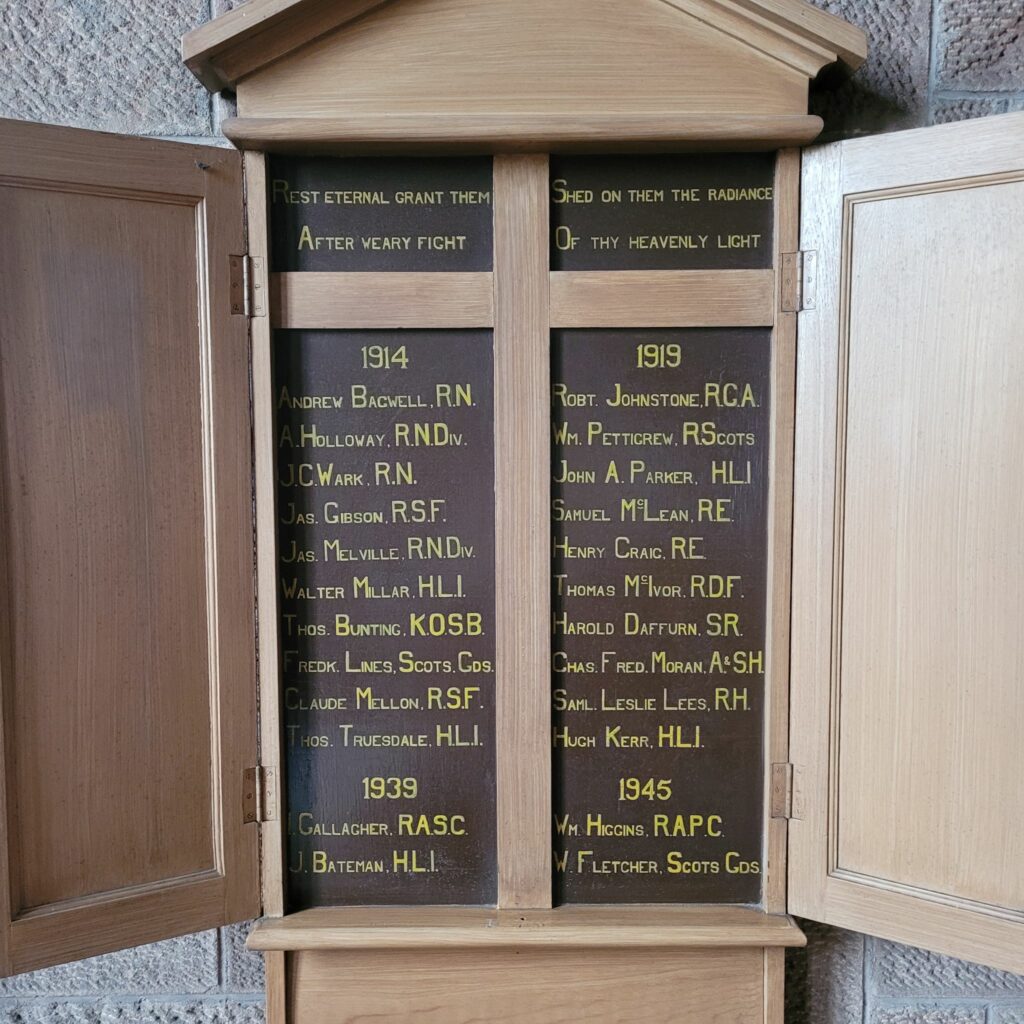 REST ETERNAL GRANT THEM
AFTER WEARY FIGHT
SHED ON THEM THE RADIANCE
OF THY HEAVENLY LIGHT
1914
ANDREW BAGWELL, R.N.
A. HOLLOWAY, R.N.DIV.
J.C. WARK, R.N.
JAS. GIBSON, R.S.F.
JAS. MELVILLE, R.N.DIV.
WALTER MILLAR, H.L.I.
THOS. BUNTING, K.O.S.B.
FREDK. LINES, SCOTS. GDS.
CLAUDE MELLON, R.S.F.
THOS. TRUESDALE, H.L.I.
1939
GALLAGHER, R.A.S.C.
J. BATEMAN, H.L.I.
1919
ROBT. JOHNSTONE, R.G.A.
WM. PETTIGREW, R SCOTS
JOHN A. PARKER, H.L.I
SAMUEL McLEAN, R.E.
HENRY CRAIG, R.E.
THOMAS McIVOR, R.D.F.
HAROLD DAFFURN, S.R.
CHAS. FRED. MORAN, A.&S.H.
SAML. LESLIE LEES, R.H.
HUGH KERR, H.L.I.
1945
WM. HIGGINS, R.A.P.C.
W. FLETCHER, SCOTS GDS.